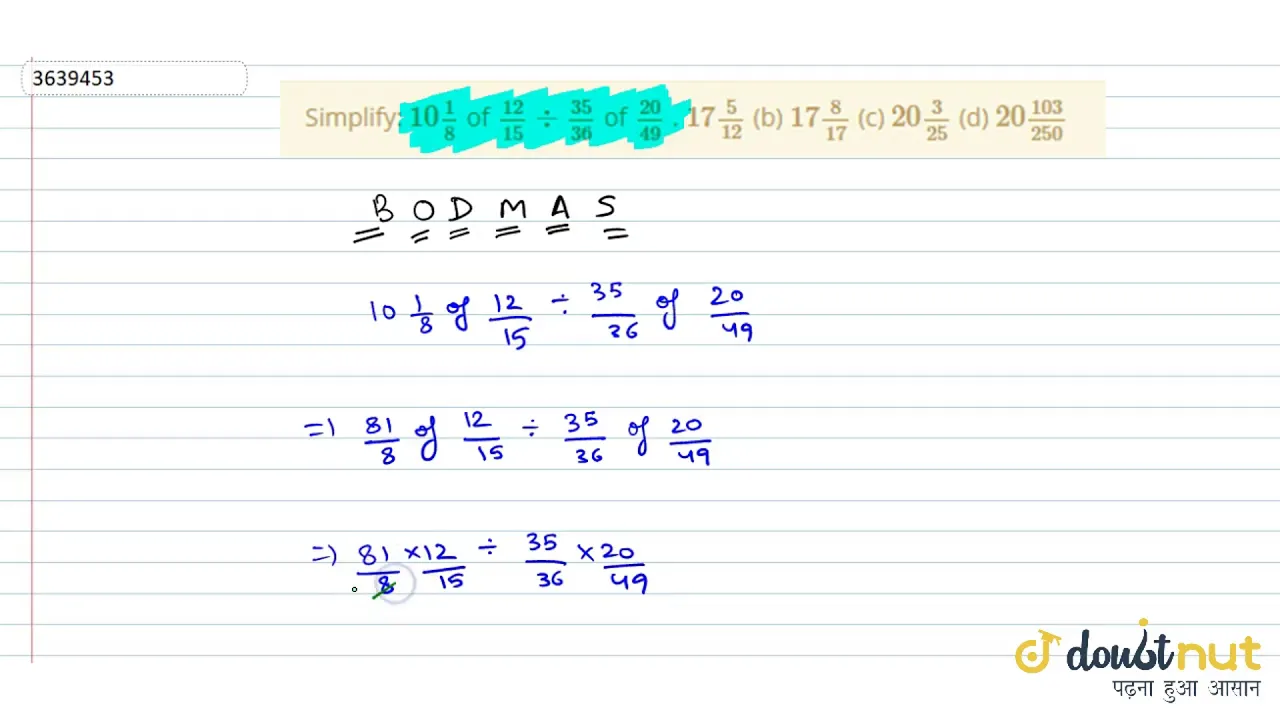 3639453
Simplify: 10 1/8 of 12/15 ÷ 35/36 of 20/49 . 17 5/12 (b) 17 8/17 (c) 20 3/25 (d) 20 103/250
B O D M A S
10 1/8 of 12/15 ÷ 35/36 of 20/49
=) 81/8 of 12/15 ÷ 35/36 of 20/49
=) 81/8 × 12/15 ÷ 35/36 × 20/49
doubtnut
पढ़ना हुआ आसान